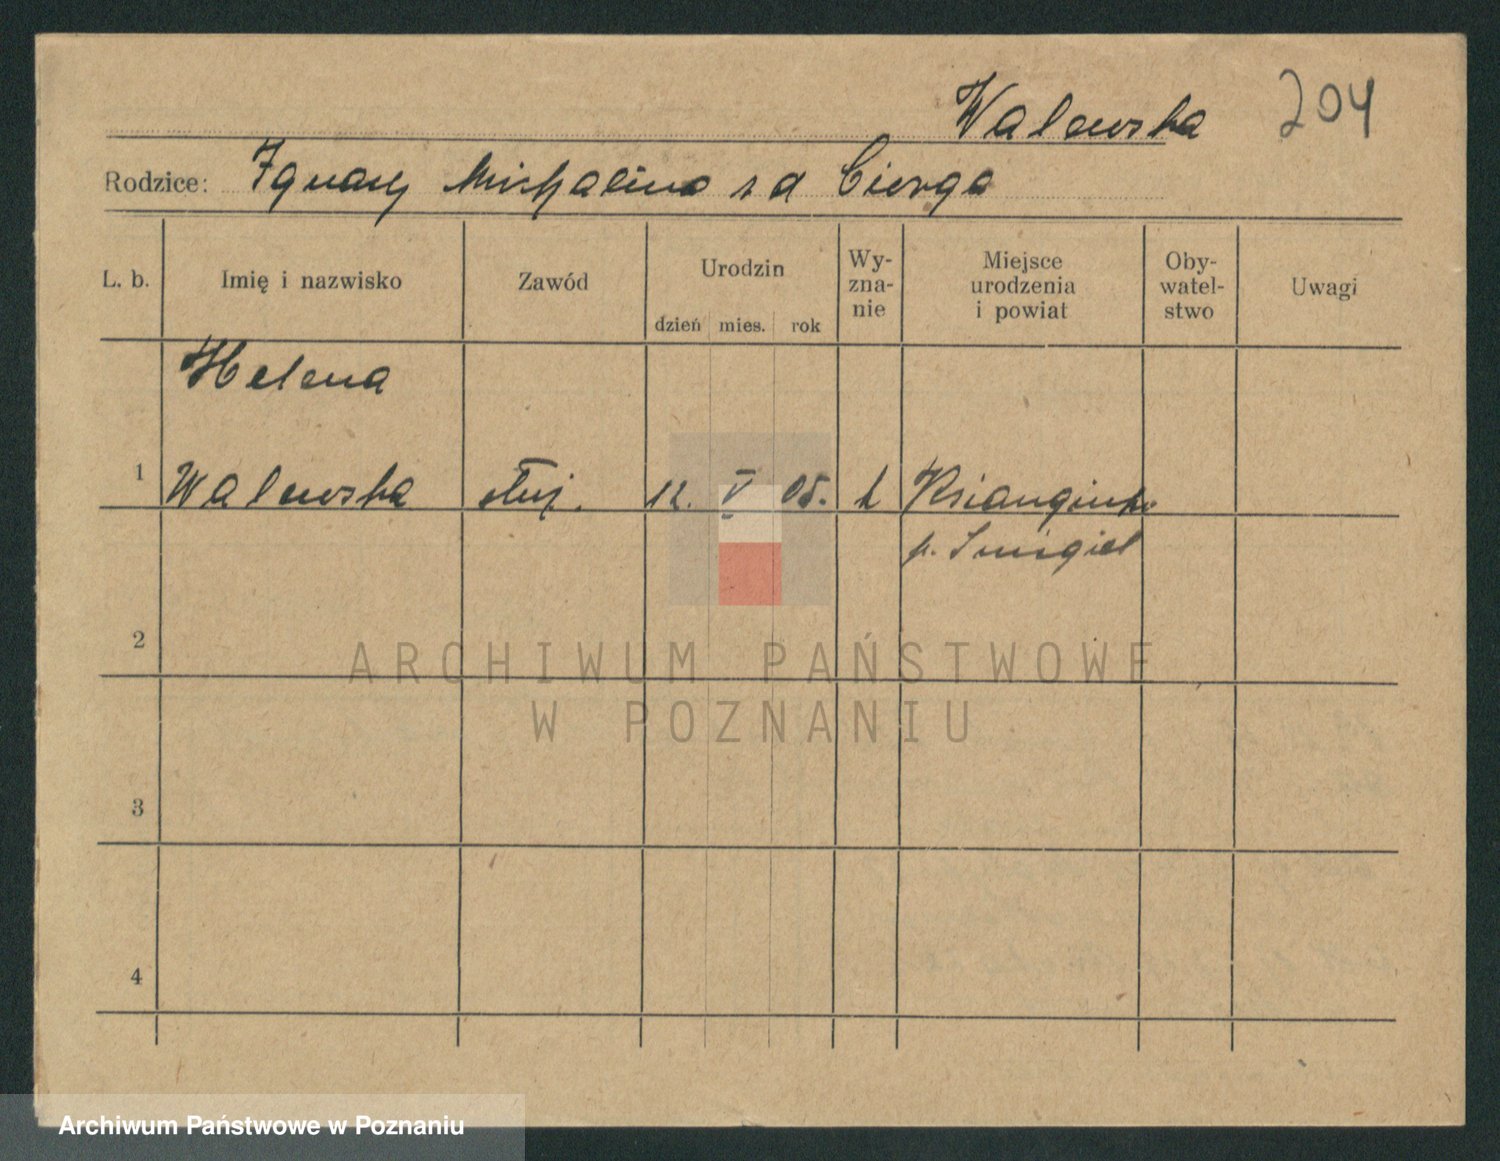 Walewska 204
Rodzice: Ignacy Michalina z d Cierga
L. b. Imię i nazwisko Zawód Urodzin dzień mies. rok Wy-zna-nie Miejsce urodzenia i powiat Oby-watel-stwo Uwagi
Helena
1 Walewska służ. 12. V 05. k
p. Śmigiel
2
ARCHIWUM PAŃSTWOWE
W POZNANIU
3
4
Archiwum Państwowe w Poznaniu